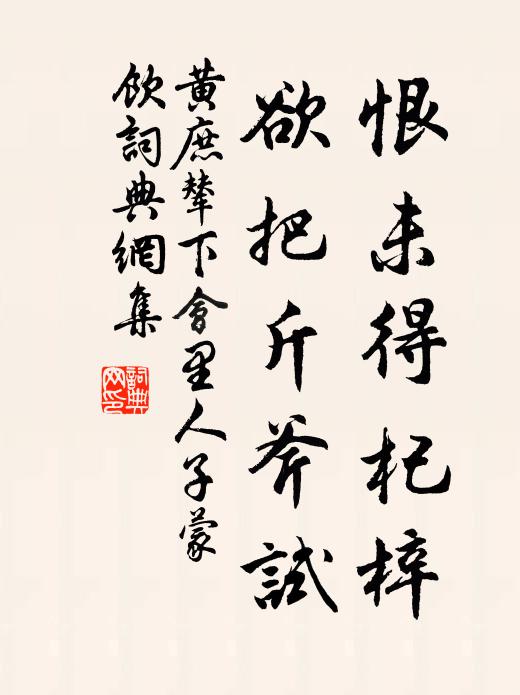 恨未得杞梓
欲把斤斧試
黃庶輦下會里人子蒙
飲詞典網集
詞典
网印